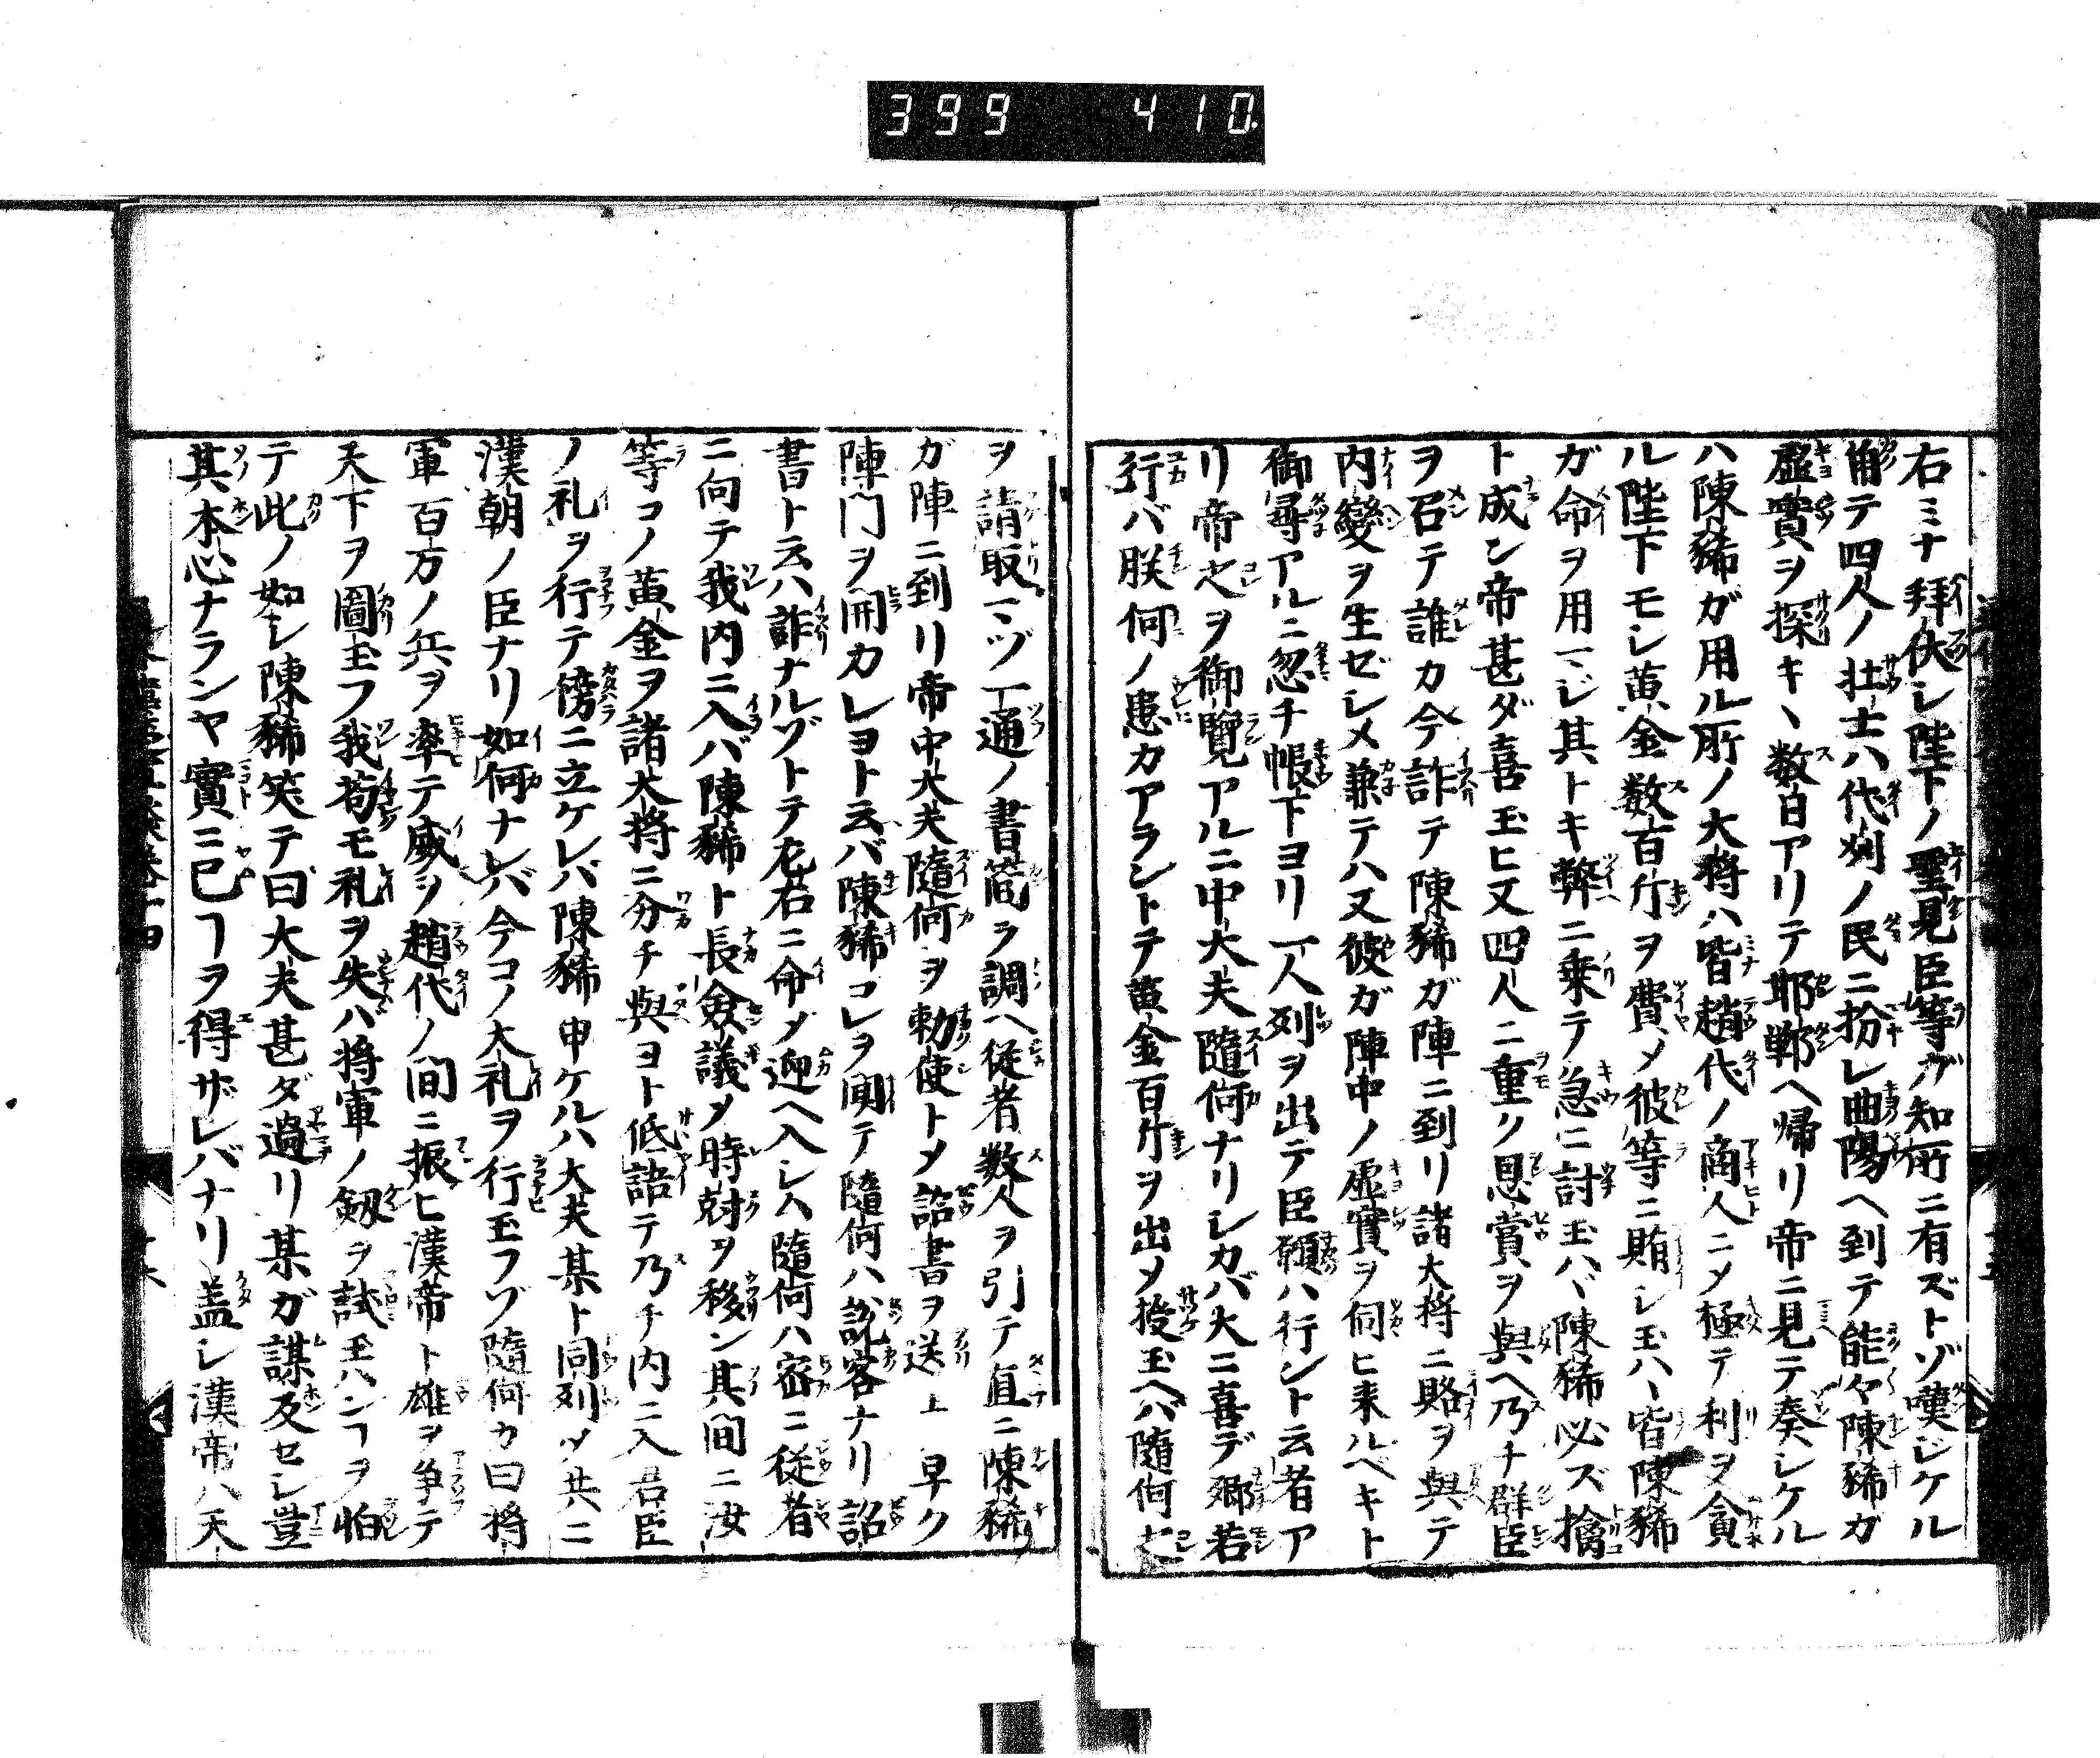 399 410.
右ミナ拜伏レ陛下ノ聖見臣等ガ知所ニ有ズトゾ嘆ジケル
角テ四人ノ壮士ハ代州ノ民ニ扮レ曲陽ヘ到テ能々陳豨ガ
虚實ヲ探キヽ数日アリテ邯鄲ヘ帰リ帝ニ見テ奏シケル
ハ陳豨ガ用ル所ノ大将ハ皆趙代ノ商人ニメ極テ利ヲ貪
ル陛下モシ黄金数百斤ヲ費メ彼等ニ賄シ玉ハヽ皆陳豨
ガ命ヲ用マジ其トキ弊ニ乗テ急ニ討玉ハヾ陳豨必ズ擒
ト成ン帝甚ダ喜玉ヒ又四人ニ重ク恩賞ヲ與ヘ乃チ群臣
ヲ召テ誰カ今詐テ陳豨ガ陣ニ到リ諸大将ニ賂ヲ與テ
内變ヲ生ゼシメ兼テハ又彼ガ陣中ノ虚實ヲ伺ヒ来ルヘキト
御尋アルニ忽チ帳下ヨリ一人列ヲ出テ臣願ハ行ント云者ア
リ帝之ヲ御覧アルニ中大夫隨何ナリシカバ大ニ喜デ郷若
行バ朕何ノ患カアラントテ黄金百斤ヲ出メ授玉ヘバ隨何之
ヲ請取マヅ一通ノ書簡ヲ調ヘ従者数人ヲ引テ直ニ陳豨
ガ陣ニ到リ帝中大夫隨何ヲ勅使トメ詔書ヲ送上早ク
陣門ヲ開カレヨト云バ陳豨コレヲ聞テ隨何ハ説客ナリ詔
書ト云ハ詐ナルゾトテ左右ニ命メ迎ヘ入シヘ隨何ハ密ニ従者
ニ向テ我内ニ入バ陳豨ト長僉議メ時尅ヲ移ン其間ニ汝
等コノ黄金ヲ諸大将ニ分チ與ヨト低語テ乃チ内ニ入君臣
ノ礼ヲ行テ傍ニ立ケレバ陳豨申ケルハ大夫某ト同列メ共ニ
漢朝ノ臣ナリ如何ナレバ今コノ大礼ヲ行玉フゾ隨何カ曰将
軍百万ノ兵ヲ率テ威ヲ趙代ノ間ニ振ヒ漢帝ト雄ヲ争テ
天下ヲ圖玉フ我苟モ礼ヲ失ハ将軍ノ劔ヲ試玉ハンヿヲ怕
テ此ノ如シ陳豨笑テ曰大夫甚ダ過リ某ガ謀反セシ豈
其本心ナランヤ實ニ已ヿヲ得ザレバナリ盖シ漢帝ハ天